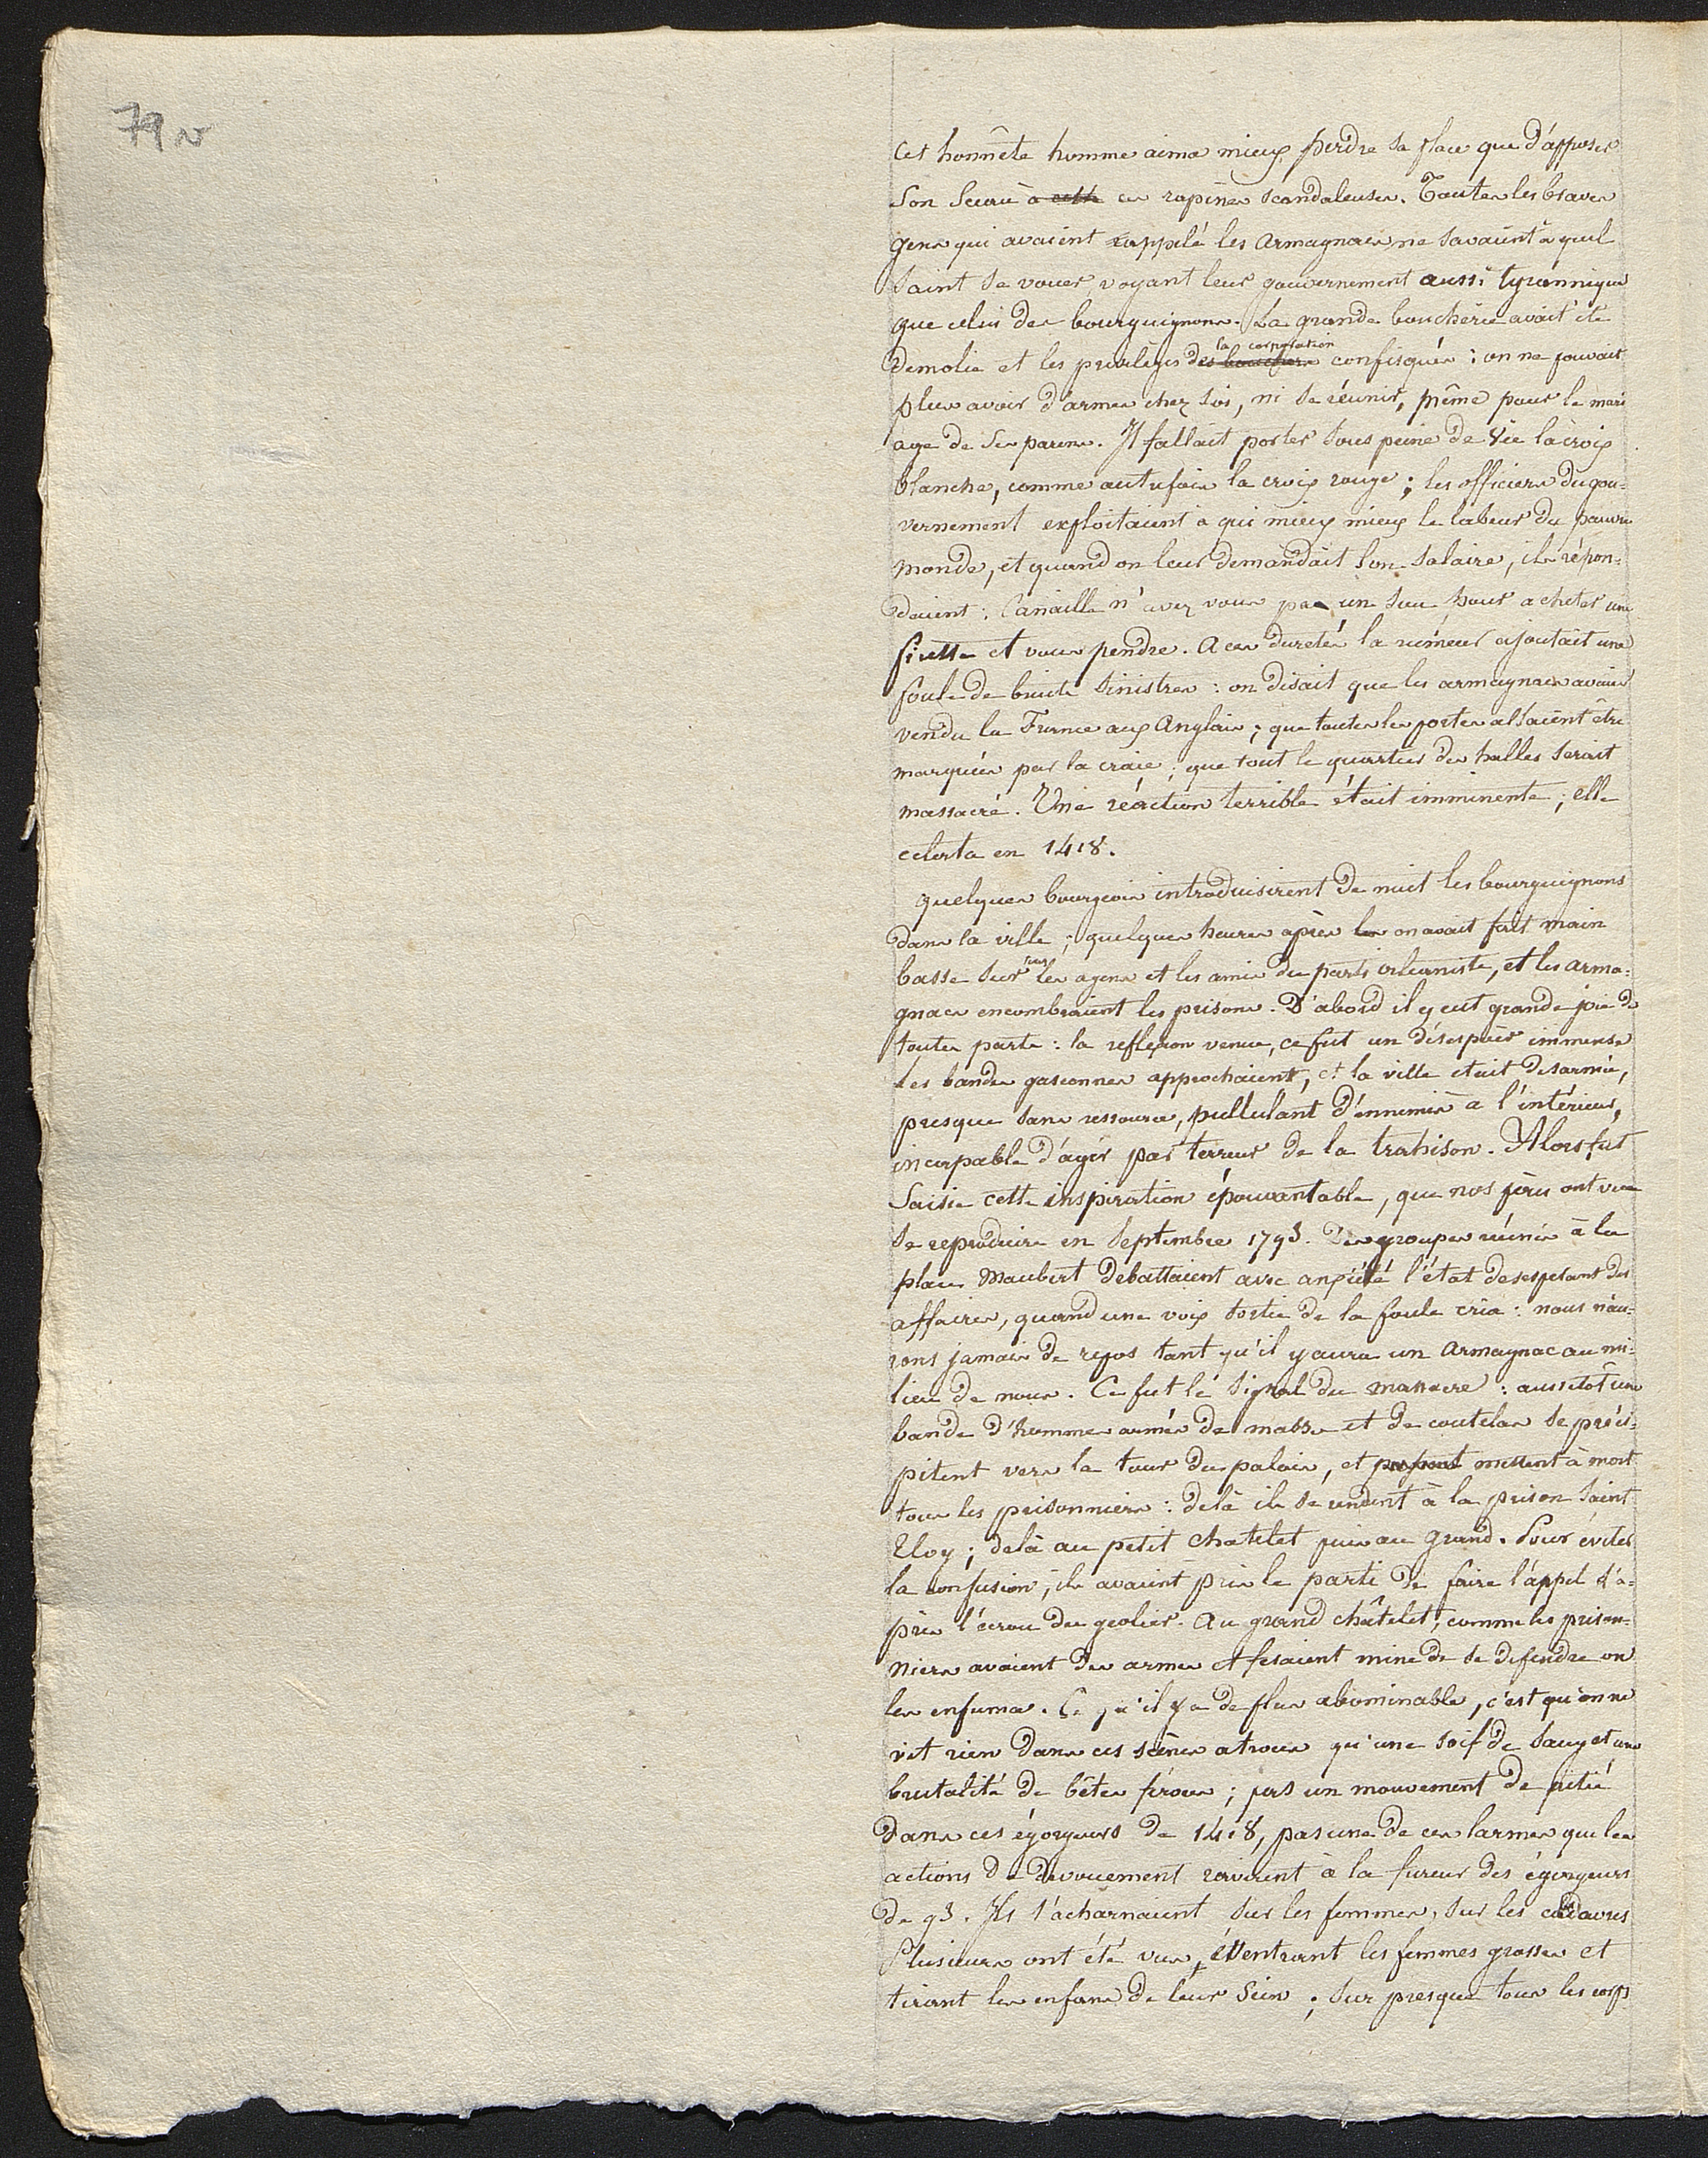 79 v
Cet honnête homme aima mieux perdre sa place que d'apposer
son sceau à cette ces rapines scandaleuses. Toutes les braves
gens qui avaient rappelé les armagnacs ne savaient à quel
saint se vouer, voyant leur gouvernement aussi tyrannique
que celui des bourguignons. La grande boucherie avait été
la corporation
demolie et les priviléges des bouchers confisqués : on ne pouvait
plus avoir d'armes chez soi, ni se réunir, même pour le mari
age de ses parens. Il fallait porter sous peine de vie la croix
blanche, comme autrefois la croix rouge ; les officiers du gou-
vernement exploitaient à qui mieux mieux le labeur du pauvre
monde, et quand on leur demandait son salaire, ils répon-
daient : Canaille n'avez vous pas un sou pour acheter une
ficelle et vous pendre. A ces duretés la rumeur ajoutait une
foule de bruits sinistres : on disait que les armagnacs avaient
vendu la France aux Anglais ; que toutes les portes allaient être
marquées par la craie ; que tout le quartier des halles serait
massacré. Une réaction terrible était imminente ; elle
eclata en 1418.
quelques bourgeois introduisirent de nuit les bourguignons
dans la ville ; quelques heures après les on avait fait main
basse sur les agens et les amis du parti orléaniste, et les arma-
gnacs encombraient les prisons. D'abord il y eut grande joie de
toutes parts : la reflexion venue, ce fut un désespoir immense
les bandes gasconnes approchaient, et la ville était desarmée,
presque sans ressource, pullulant d'ennemis à l'intérieur,
incapable d'agir par terreur de la trahison. Alors fut
saisie cette inspiration épouvantable, que nos pères ont vue
se reproduire en septembre 1793. Des groupes réunis à la
place Maubert debattaient avec anxiété l'état desesperant des
affaires, quand une voix sortie de la foule cria : nous n'au-
rons jamais de repos tant qu'il y aura un Armagnac au mi-
lieu de nous. Ce fut le signal du massacre : aussitôt une
bande d'hommes armés de masses et de coutelas se préci-
pitent vers la tour du palais, et mettent à mort
tous les prisonniers : delà ils se rendent à la prison saint
Eloy ; delà au petit chatelet puis au grand. Pour éviter
la confusion, ils avaient pris le parti de faire l'appel d'a-
près l'écrou du geolier. Au grand châtelet, comme les prison-
niers avaient des armes et fesaient mine de se defendre on
les enfuma. Ce qu'il y a de plus abominable, c'est qu'on ne
vit rien dans ces scènes atroces qu'une soif de sang et une
brutalité de bêtes féroces ; pas un mouvement de pitié
dans ces égorgeurs de 1418, pas une de ces larmes que les
actions de devouement ravirent à la fureur des égorgeurs
de 93. Ils s'acharnaient sur les femmes, sur les cadavres
Plusieurs ont été vus, éventrant les femmes grosses et
tirant les enfans de leur sein ; sur presque tous les corps